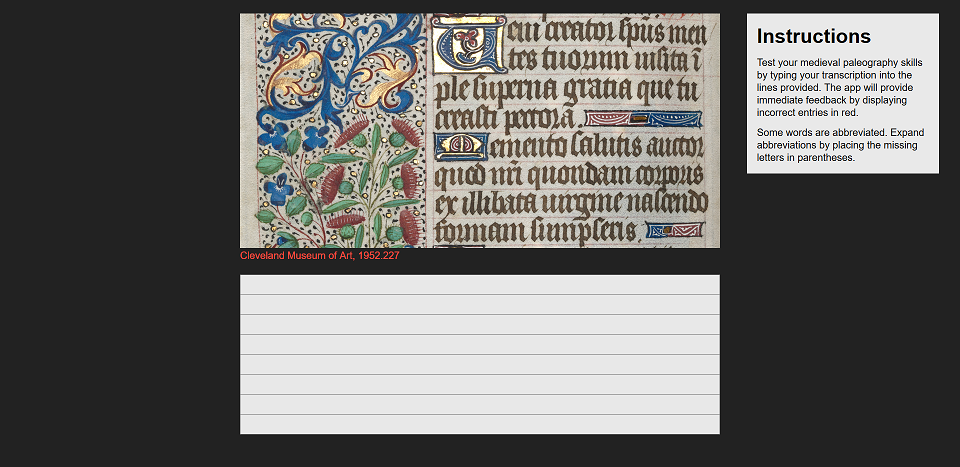 Ueni creator sp̄us men
tes tuorum uisita ī
ple superna gratia que tu
creasti pectora.
Memento salutis auctor
quod nr̄i quondam corporis
ex illibata uirgine nascendo
formam sumpseris.
Cleveland Museum of Art, 1952.227
Instructions
Test your medieval paleography skills
by typing your transcription into the
lines provided. The app will provide
immediate feedback by displaying
incorrect entries in red.
Some words are abbreviated. Expand
abbreviations by placing the missing
letters in parentheses.